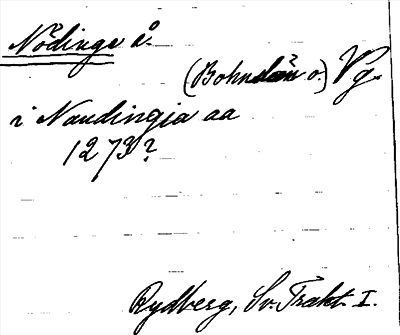 Nödinge å.
(Bohuslän o.) Vg.
i Naudingia aa
1273?
Rydberg, Sv. Trakt. I.